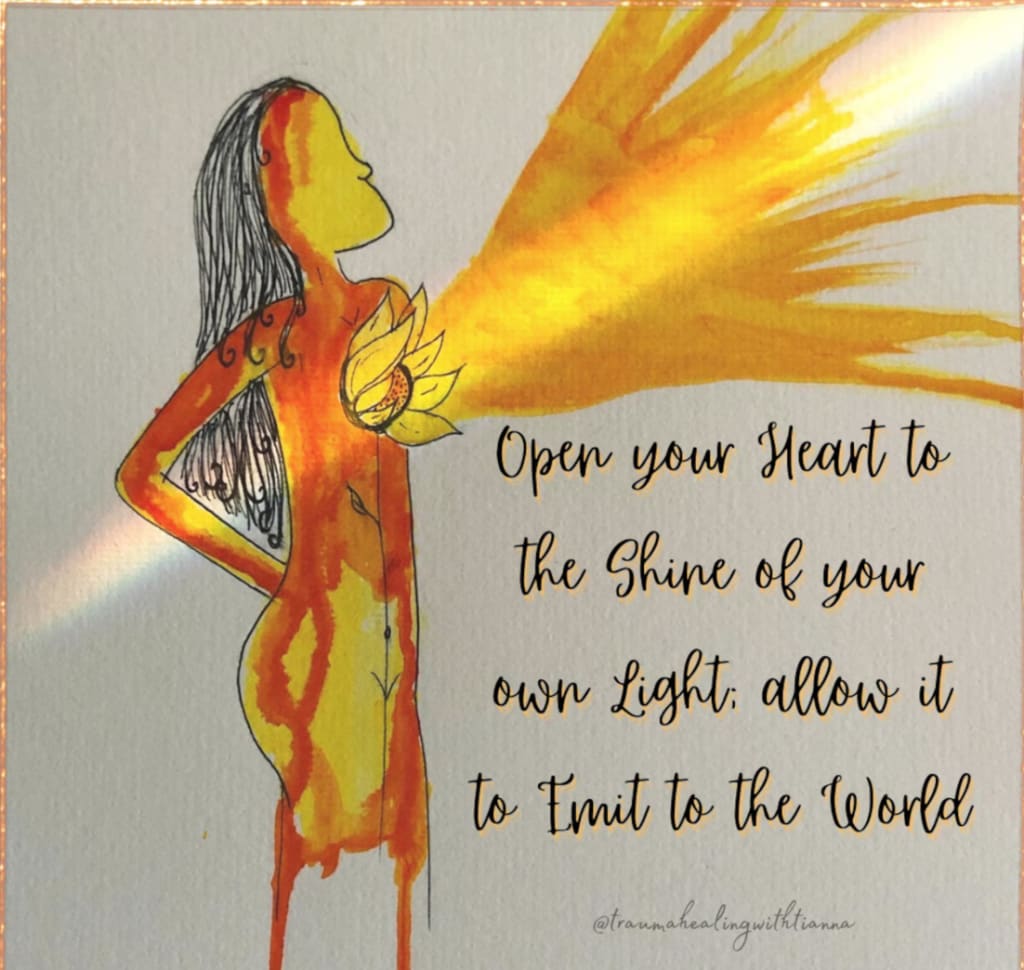 Open your Heart to
the Shine of your
own Light; allow it
to Emit to the World
@traumahealingwithtianna